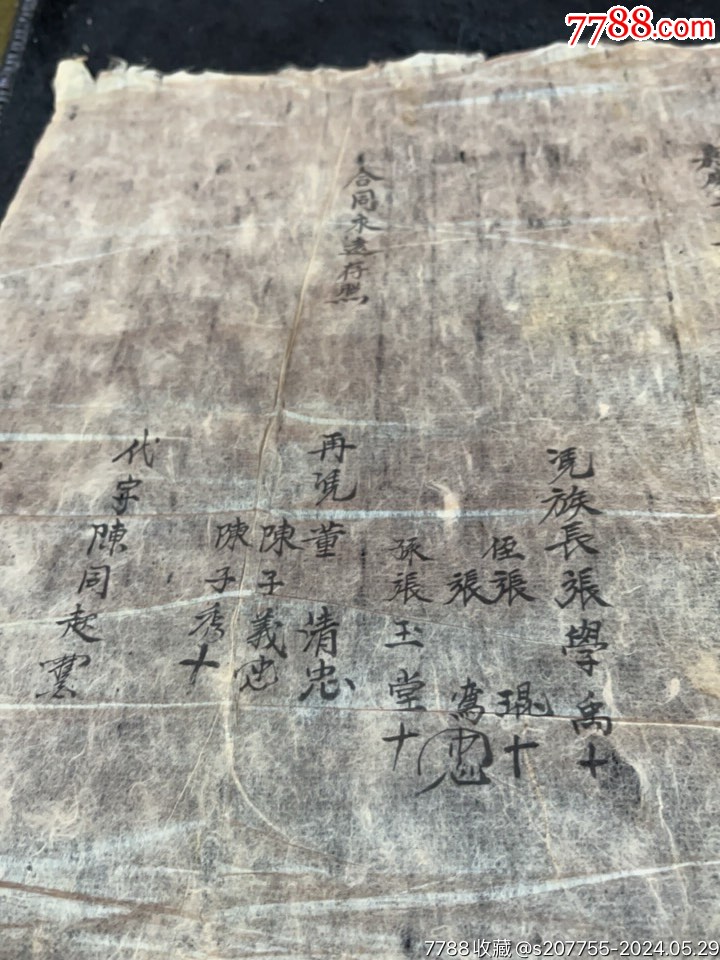 7788.com
嘉慶二十
憑族長張學禹十
侄張琨十
張
孫張玉堂十
再憑董清忠
陳子義
陳子秀十
合同永遠存照
代字陳同起
7788收藏@s207755-2024.05.29